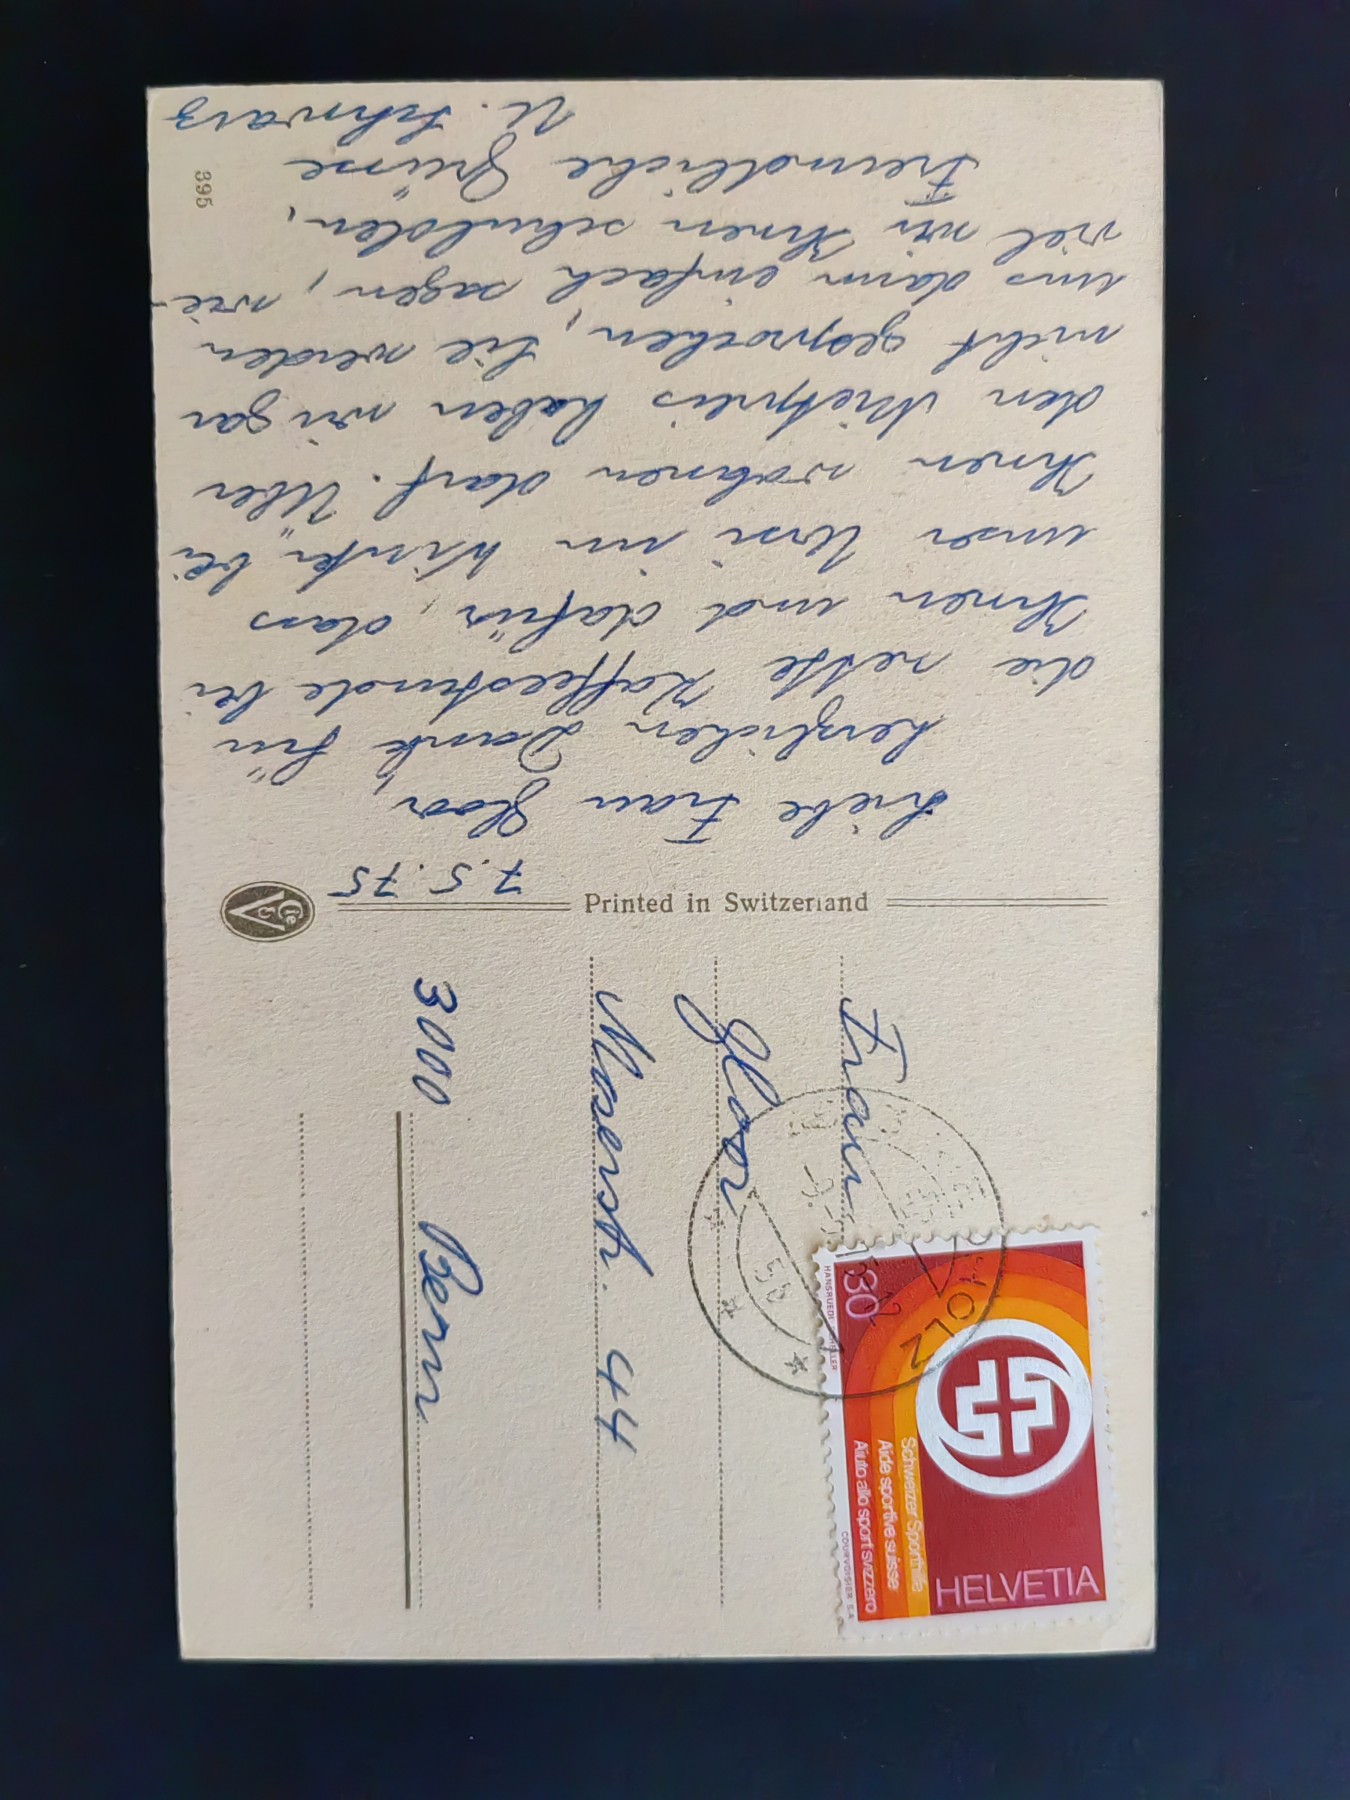 7.5.75
Liebe Frau Gloor,
herzlichen Dank für
die nette Kaffeestunde bei
Ihnen und dafür, dass
unser Ursi im bei
Ihnen wohnen darf. Über
den Mietpreis haben wir gar
nicht gesprochen, Sie werden
uns dann einfach sagen, wie-
viel wir Ihnen schulden.
Freundliche Grüsse
U. Schwarz
395
Printed in Switzerland
Frau
Gloor
Moserstr. 44
3000 Bern
HOLZ
HELVETIA
80
Schweizer Sporthilfe
Aide sportive suisse
Aiuto allo sport svizzero
COURVOISIER S.A.